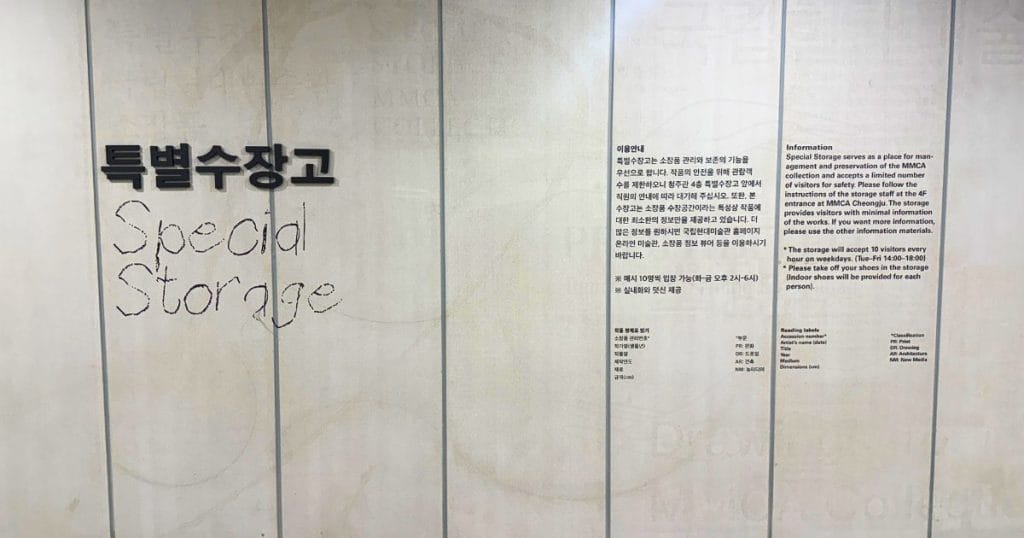 특별수장고
Special
Storage
이용안내
특별수장고는 소장품 관리와 보존의 기능을
우선으로 합니다. 작품의 안전을 위해 관람객
수를 제한하오니 청주관 4층 특별수장고 앞에서
직원의 안내에 따라 대기해 주십시오. 또한, 본
수장고는 소장품 수장공간이라는 특성상 작품에
대한 최소한의 정보만을 제공하고 있습니다. 더
많은 정보를 원하시면 국립현대미술관 홈페이지
온라인 미술관, 소장품 정보 뷰어 등을 이용하시기
바랍니다.
※ 매시 10명씩 입장 가능(화–금 오후 2시–6시)
※ 실내화와 덧신 제공
작품 명제표 읽기
소장품 관리번호*
작가명(생몰년)
작품명
제작연도
재료
규격(cm)
*부문
PR: 판화
DR: 드로잉
AR: 건축
NM: 뉴미디어
Information
Special Storage serves as a place for man-
agement and preservation of the MMCA
collection and accepts a limited number
of visitors for safety. Please follow the
instructions of the storage staff at the 4F
entrance at MMCA Cheongju. The storage
provides visitors with minimal information
of the works. If you want more information,
please use the other information materials.
* The storage will accept 10 visitors every
hour on weekdays. (Tue–Fri 14:00–18:00)
* Please take off your shoes in the storage
(Indoor shoes will be provided for each
person).
Reading labels
Accession number*
Artist's name (date)
Title
Year
Medium
Dimensions (cm)
*Classification
PR: Print
DR: Drawing
AR: Architecture
NM: New Media